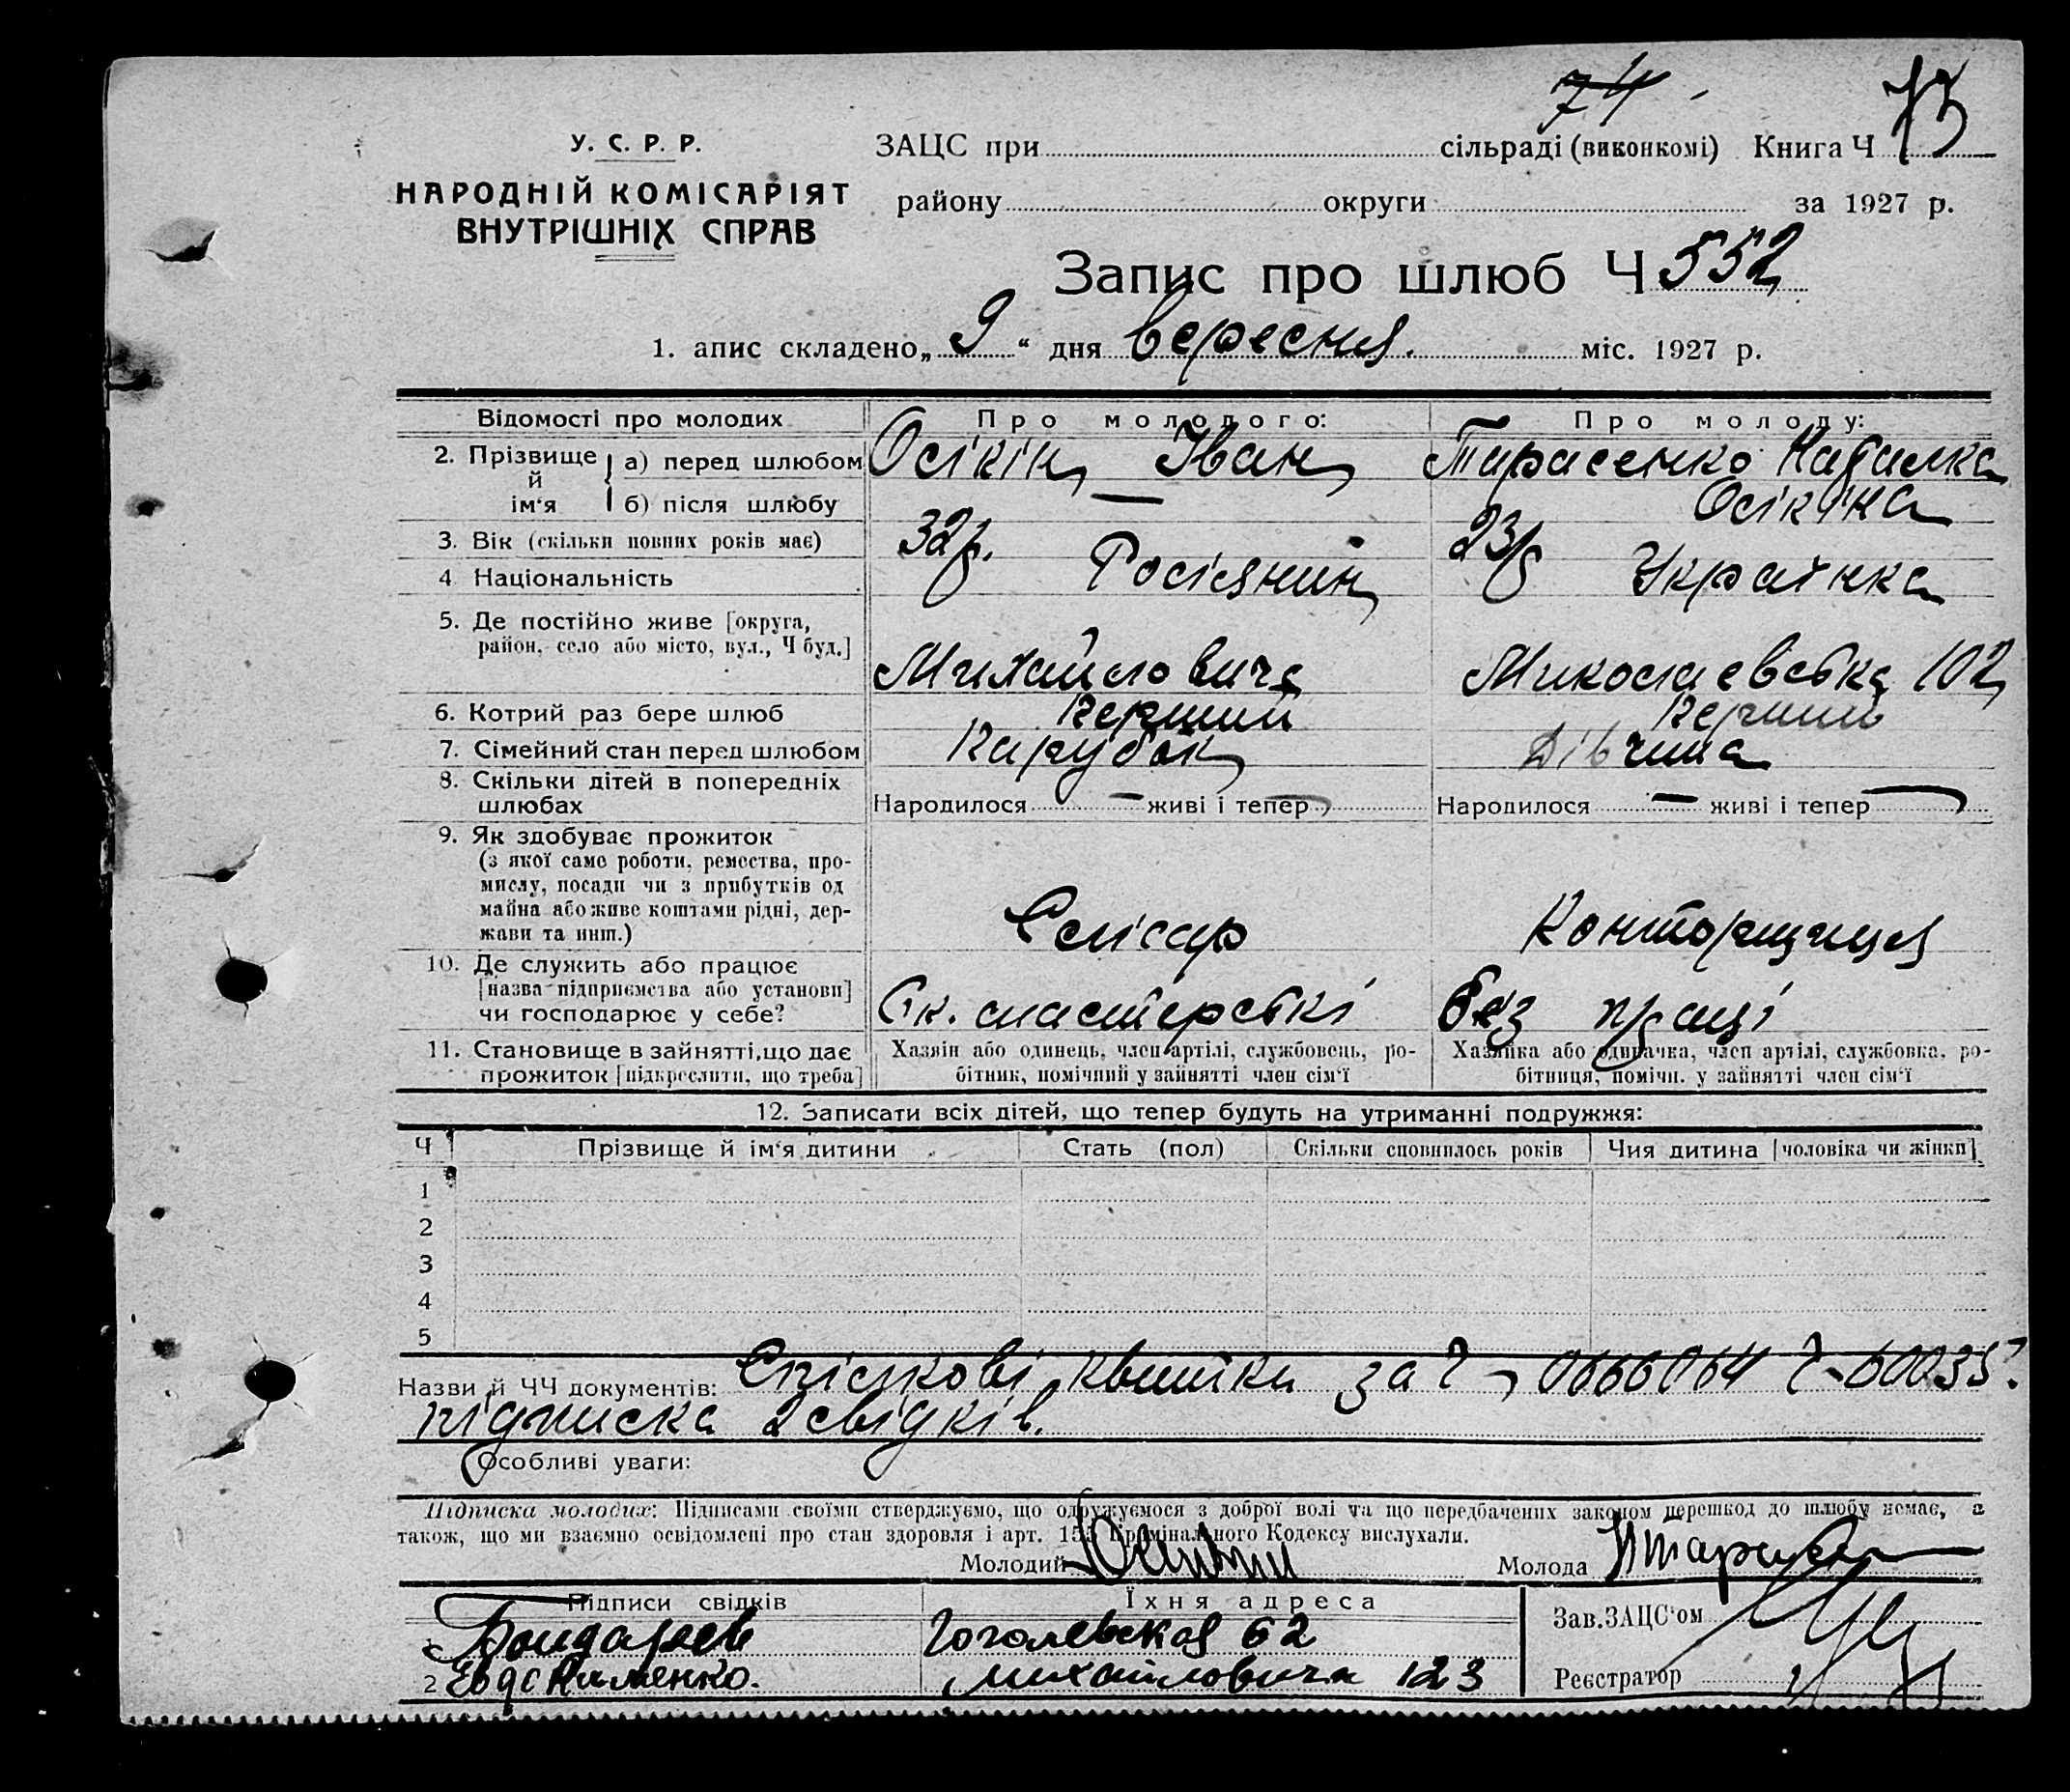 74
У. С. Р. Р.
НАРОДНІЙ КОМІСАРІЯТ
ВНУТРІШНІХ СПРАВ
ЗАЦС при сільраді (виконкомі) Книга Ч 73
району округи за 1927 р.
Запис про шлюб Ч 552
1. апис складено „ 9 “ дня вересня. міс. 1927 р.
Відомості про молодих Про молодого: Про молоду:
2. Прізвище й ім'я а) перед шлюбом Осікін Іван Тарасенко
б) після шлюбу — Осікіна
3. Вік (скільки повних років має) 32 р. 23 р
4 Національність Росіянин Українка
5. Де постійно живе [округа, район, село або місто, вул., Ч буд.] Михайловича Миколаевська 102
6. Котрий раз бере шлюб Перший Перший
7. Сімейний стан перед шлюбом Парубок Дівчина
8. Скільки дітей в попередніх шлюбах Народилося — живі і тепер Народилося — живі і тепер —
9. Як здобуває прожиток
(з якої саме роботи, ремества, про-
мислу, посади чи з прибутків од
майна або живе коштами рідні, дер-
жави та инш.) Слісар Конторщиця
10. Де служить або працює
[назва підприємства або установи]
чи господарює у себе? майстерські без праці
11. Становище в зайнятті, що дає
прожиток [підкреслити, що треба]
Хазяїн або одинець, член артілі, службовець, ро-
бітник, помічний у зайнятті член сім'ї
Хазяйка або одиначка, член артілі, службовка, ро-
бітниця, помічн. у зайнятті член сім'ї
12. Записати всіх дітей, що тепер будуть на утриманні подружжя:
Ч Прізвище й ім'я дитини Стать (пол) Скільки сповнилось років Чия дитина [чоловіка чи жінки]
1
2
3
4
5
Назви й ЧЧ документів: квитки за 0666064
підписка 2 свідків.
Особливі уваги:
Підписка молодих: Підписами своїми стверджуємо, що одружуємося з доброї волі та що передбачених законом перешкод до шлюбу немає, а
також, що ми взаємно освідомлені про стан здоровля і арт. 155 Кримінального Кодексу вислухали.
Молодий Молода
Підписи свідків Їхня адреса Зав. ЗАЦС'ом
1 Бондарев Гоголевская 62
2 Евдокименко. Михайловича 123 Реєстратор